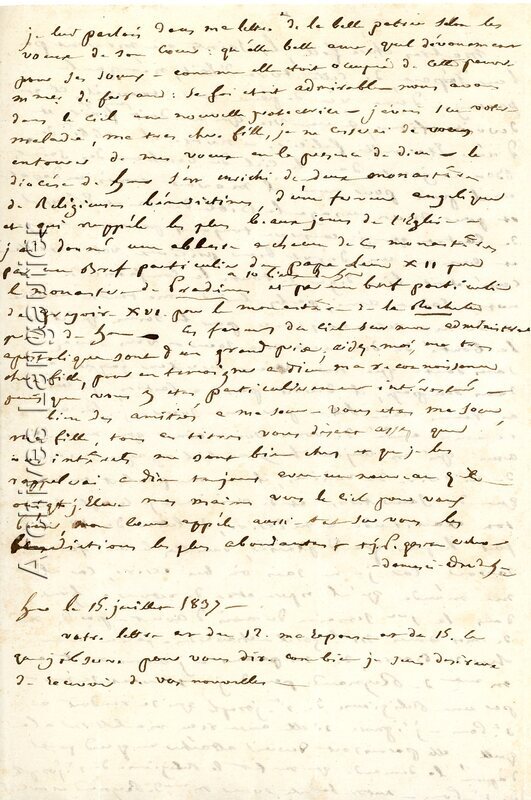 je leur parlois dans ma lettre de la belle patrie selon les
voeux de son coeur : quelle belle ame, quel dévouement
pour ses soeurs - comme elle étoit occupée de cette pauvre
sa foi étoit admirable nous avons
dans le ciel une nouvelle protectrice - j'avois su votre
maladie, ma tres chere fille, je ne cessois de vous
entourer de mes voeux en la presence de dieu - le
diocése de s'est enrichi de deux monastéres
de Religieuses bénédictines, d'une ferveur angelique
et qui rappéle les plus beaux jours de l'Eglise -
j'ai donné une abbesse a chacun de ces monastéres
par un Bref particulier du pape Leon XII pour
a 10 lieues de
le monastere de Pradines et par un bref particulier
de gregoire XVI pour le monastére de la Rochette
prés de - Ces faveurs du ciel sur mon administration
apostolique sont d'un grand prix, aidez-moi, ma tres
chere fille, pour en temoigner a dieu ma reconnoissance
puis que vous y etes particulierement intéressée -
bien des amitiés a ma soeur - vous etes ma soeur,
ma fille, tous ces titres vous disent assez que
vos intérêts me sont bien chers et que je les
rappelerai a dieu toujours
j'Eleve mes mains vers le ciel pour vous
mon coeur appéle aussi-tot sur vous les
benedictions les plus abondantes +
le 15. juillet 1837 -
votre lettre est du 12. ma reponse est du 15. ce
que j'observe pour vous dire combien je suis desireux
de recevoir de vos nouvelles
Archives Largentier